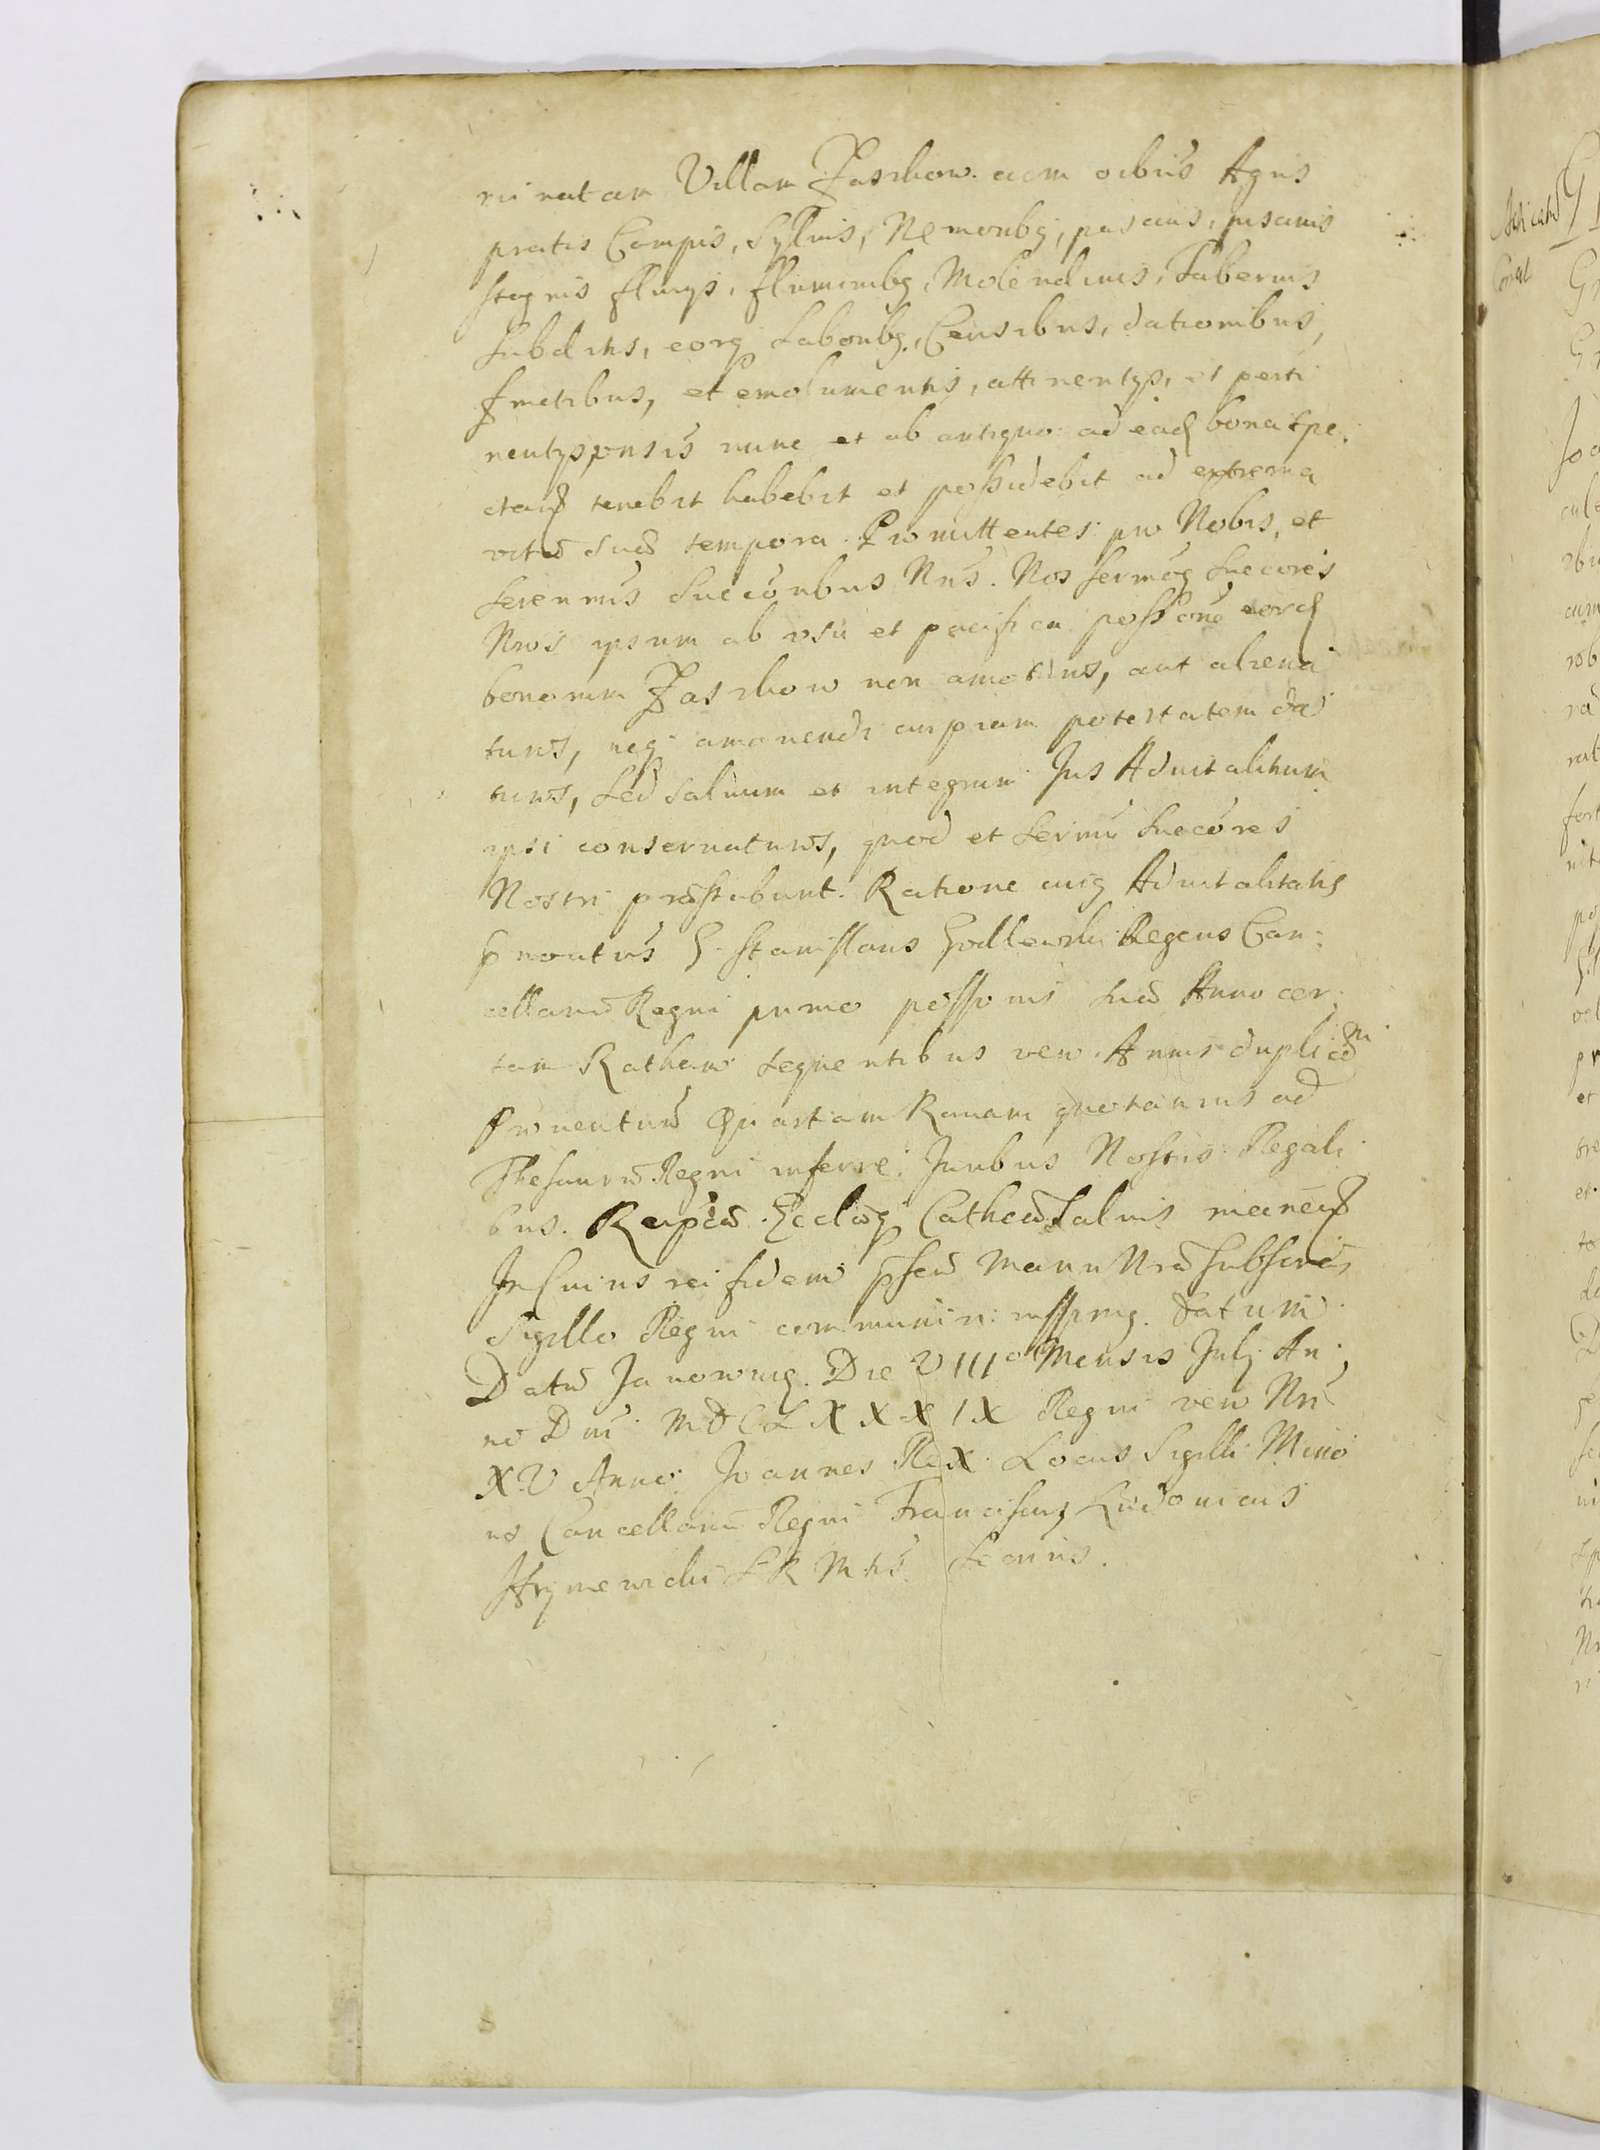 minatam Villam Zaschow cum oibus Agris
pratis Campis, Sylvis, Nemoribq, piscinis,
stagnis fluvys, fluminibq, Molendinis, Tabernis
Subditis, eorq Laboribq, Censibus, dationibus,
fructibus, et emolumentis, attinentys, et perti
nentys nunc et ab antiquo ad ead bona spe:
ctan tenebit habebit et possidebit ad extrema
vitæ suæ tempora. Promittentes pro Nobis, et
Serenmis Succoribus Nris. Nos Sermosq Succores
Nros ipsum ab usu et pacifica possone eord
bonorum Zaschow non amoturos, aut aliena
turos, neq amovendi cuipiam potestatem da
turos, Sed salvum et integrum Jus Advitalitium
ipsi conservaturos, quod et Sermi Succores
Nostri præstabunt. Ratione cuiq Advitalitatis
G. Stanislaus Godlewski Regens Can:
cellariæ Regni primo possonis suæ Anno cer,
tam Ratham sequentibus vero Annis duplicem
Proventum Quartam Ravam quotannis ad
Thesaurum Regni inferre. Juribus Nostris Regali
bus. Reipcæ Ecclæq Cathcæ Salvis manen
In Cuius rei fidem psen Manu Nra Subscrip,
Sigillo Regni communiri iussimq. Datum
Datum Javorowiæ. Die VIII Mensis July An,
no Dni MDCLXXXIX Regni vero Nri
XV Anno. Joannes Rex. Locus Sigilli Mino
ris Cancellariæ Regni Franciscus Ludovicus
S R Mtis Secrius.